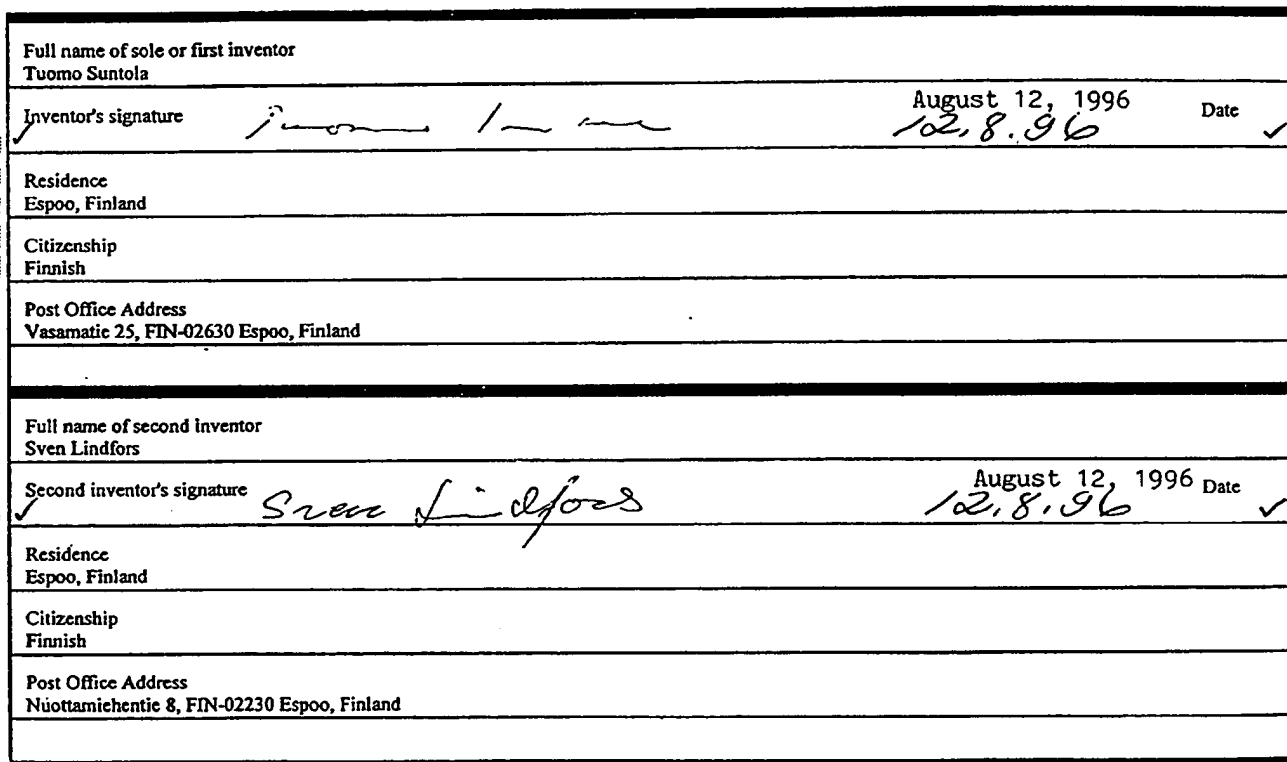 Full name of sole or first inventor
Tuomo Suntola
Inventor's signature
August 12, 1996
Date
12.8.96
Residence
Espoo, Finland
Citizenship
Finnish
Post Office Address
Vasamatie 25, FIN-02630 Espoo, Finland
Full name of second inventor
Sven Lindfors
Second inventor's signature Sven Lindfors
August 12, 1996 Date
12.8.96
Residence
Espoo, Finland
Citizenship
Finnish
Post Office Address
Nuottamiehentie 8, FIN-02230 Espoo, Finland